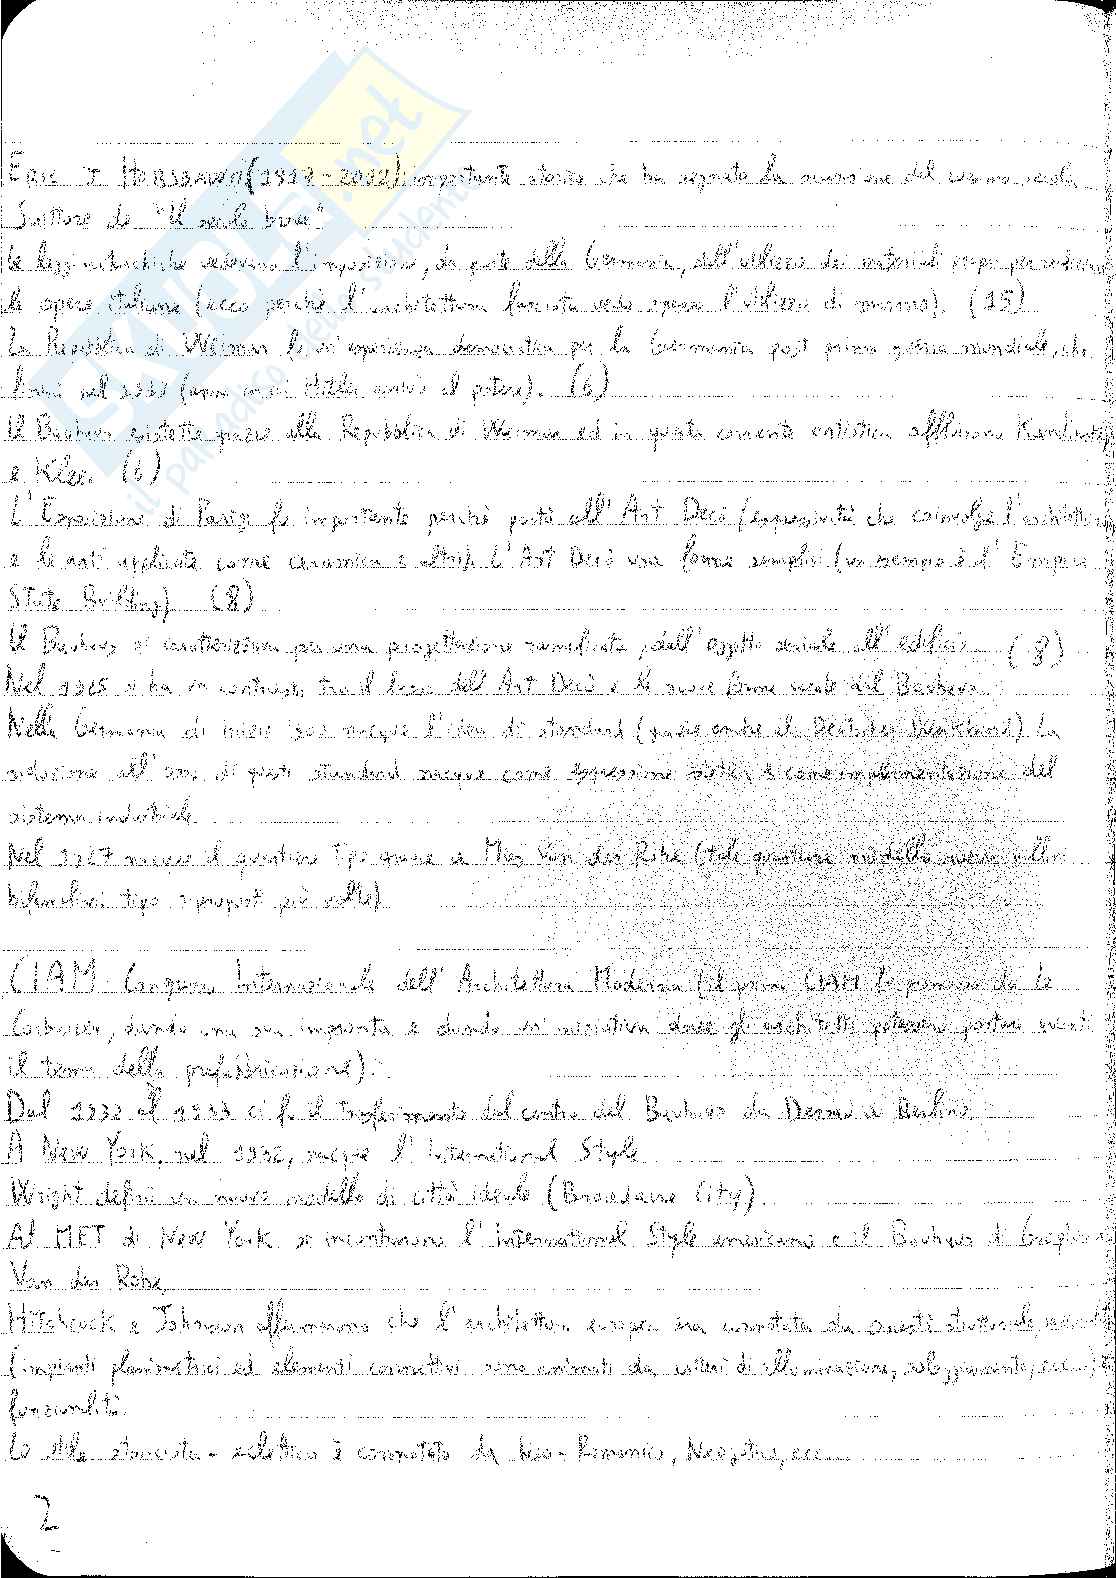 ERIC J HOBSBAWM (1917-2012): importante storico che ha segnato la scansione del ventesimo secolo
Scrittore de "Il secolo breve"
Le leggi nell'architettura vedevano l'imposizione, da parte della Germania, dell'utilizzo dei materiali propri per
le opere italiane (ecco perchè l'architettura fascista vede spesso l'utilizzo di marmo). (15)
La Repubblica di Weimar fu un'esperienza democratica per la Germania post prima guerra mondiale, che
finì nel 1933 (anno in cui Hitler arrivò al potere). (6)
Il Bauhaus esistette grazie alla Repubblica di Weimar ed in questa corrente artistica affluirono Kandinskij
e Klee. (6)
L'Esposizione di Parigi fu importante perchè portò all'Art Decò (espressività che coinvolge l'architettura
e le arti applicate come ceramica e altro). L'Art Decò usa forme semplici (un esempio è l'Empire
State Building) (8)
Il Bauhaus si caratterizza per una progettazione ramificata, dall'oggetto seriale all'edificio (8)
Nel 1925 si ha un contrasto tra il lusso dell'Art Decò e le nuove forme nude del Bauhaus
Nella Germania di inizio '900 nacque l'idea di standard (grazie anche al Deutscher Werkbund) La
soluzione all'uso di questi standard nacque come espressione sia come implementazione del
sistema industriale
Nel 1927 nacque il quartiere tipo grazie a Mies Van der Rohe (tale quartiere modello aveva alloggi
bifamiliari tipo riproposti più volte)
CIAM: Congresso Internazionale dell'Architettura Moderna (il primo CIAM fu promosso da Le
Corbusier, dando una sua impronta e dando un'iniziativa dove gli architetti potessero portare avanti
il tema della prefabbricazione).
Dal 1932 al 1933 ci fu il trasferimento del centro del Bauhaus da Dessau a Berlino
A New York, nel 1932, nacque l'International Style
Wright definì un nuovo modello di città ideale (Broadacre City).
Al MET di New York si incontrarono l'International Style americano e il Bauhaus di Gropius e
Van der Rohe
Hitchcock e Johnson affermarono che l'architettura europea era connotata da onestà strutturale,
(impianti planimetrici ed elementi connettivi sono animati da criteri di illuminazione, soleggiamento, ecc..) e
funzionalità.
Lo stile storicista-eclettico è connotato da Neo-Romanico, Neogotico, ecc...
2
SKUOLA.net
il paradiso dello studente